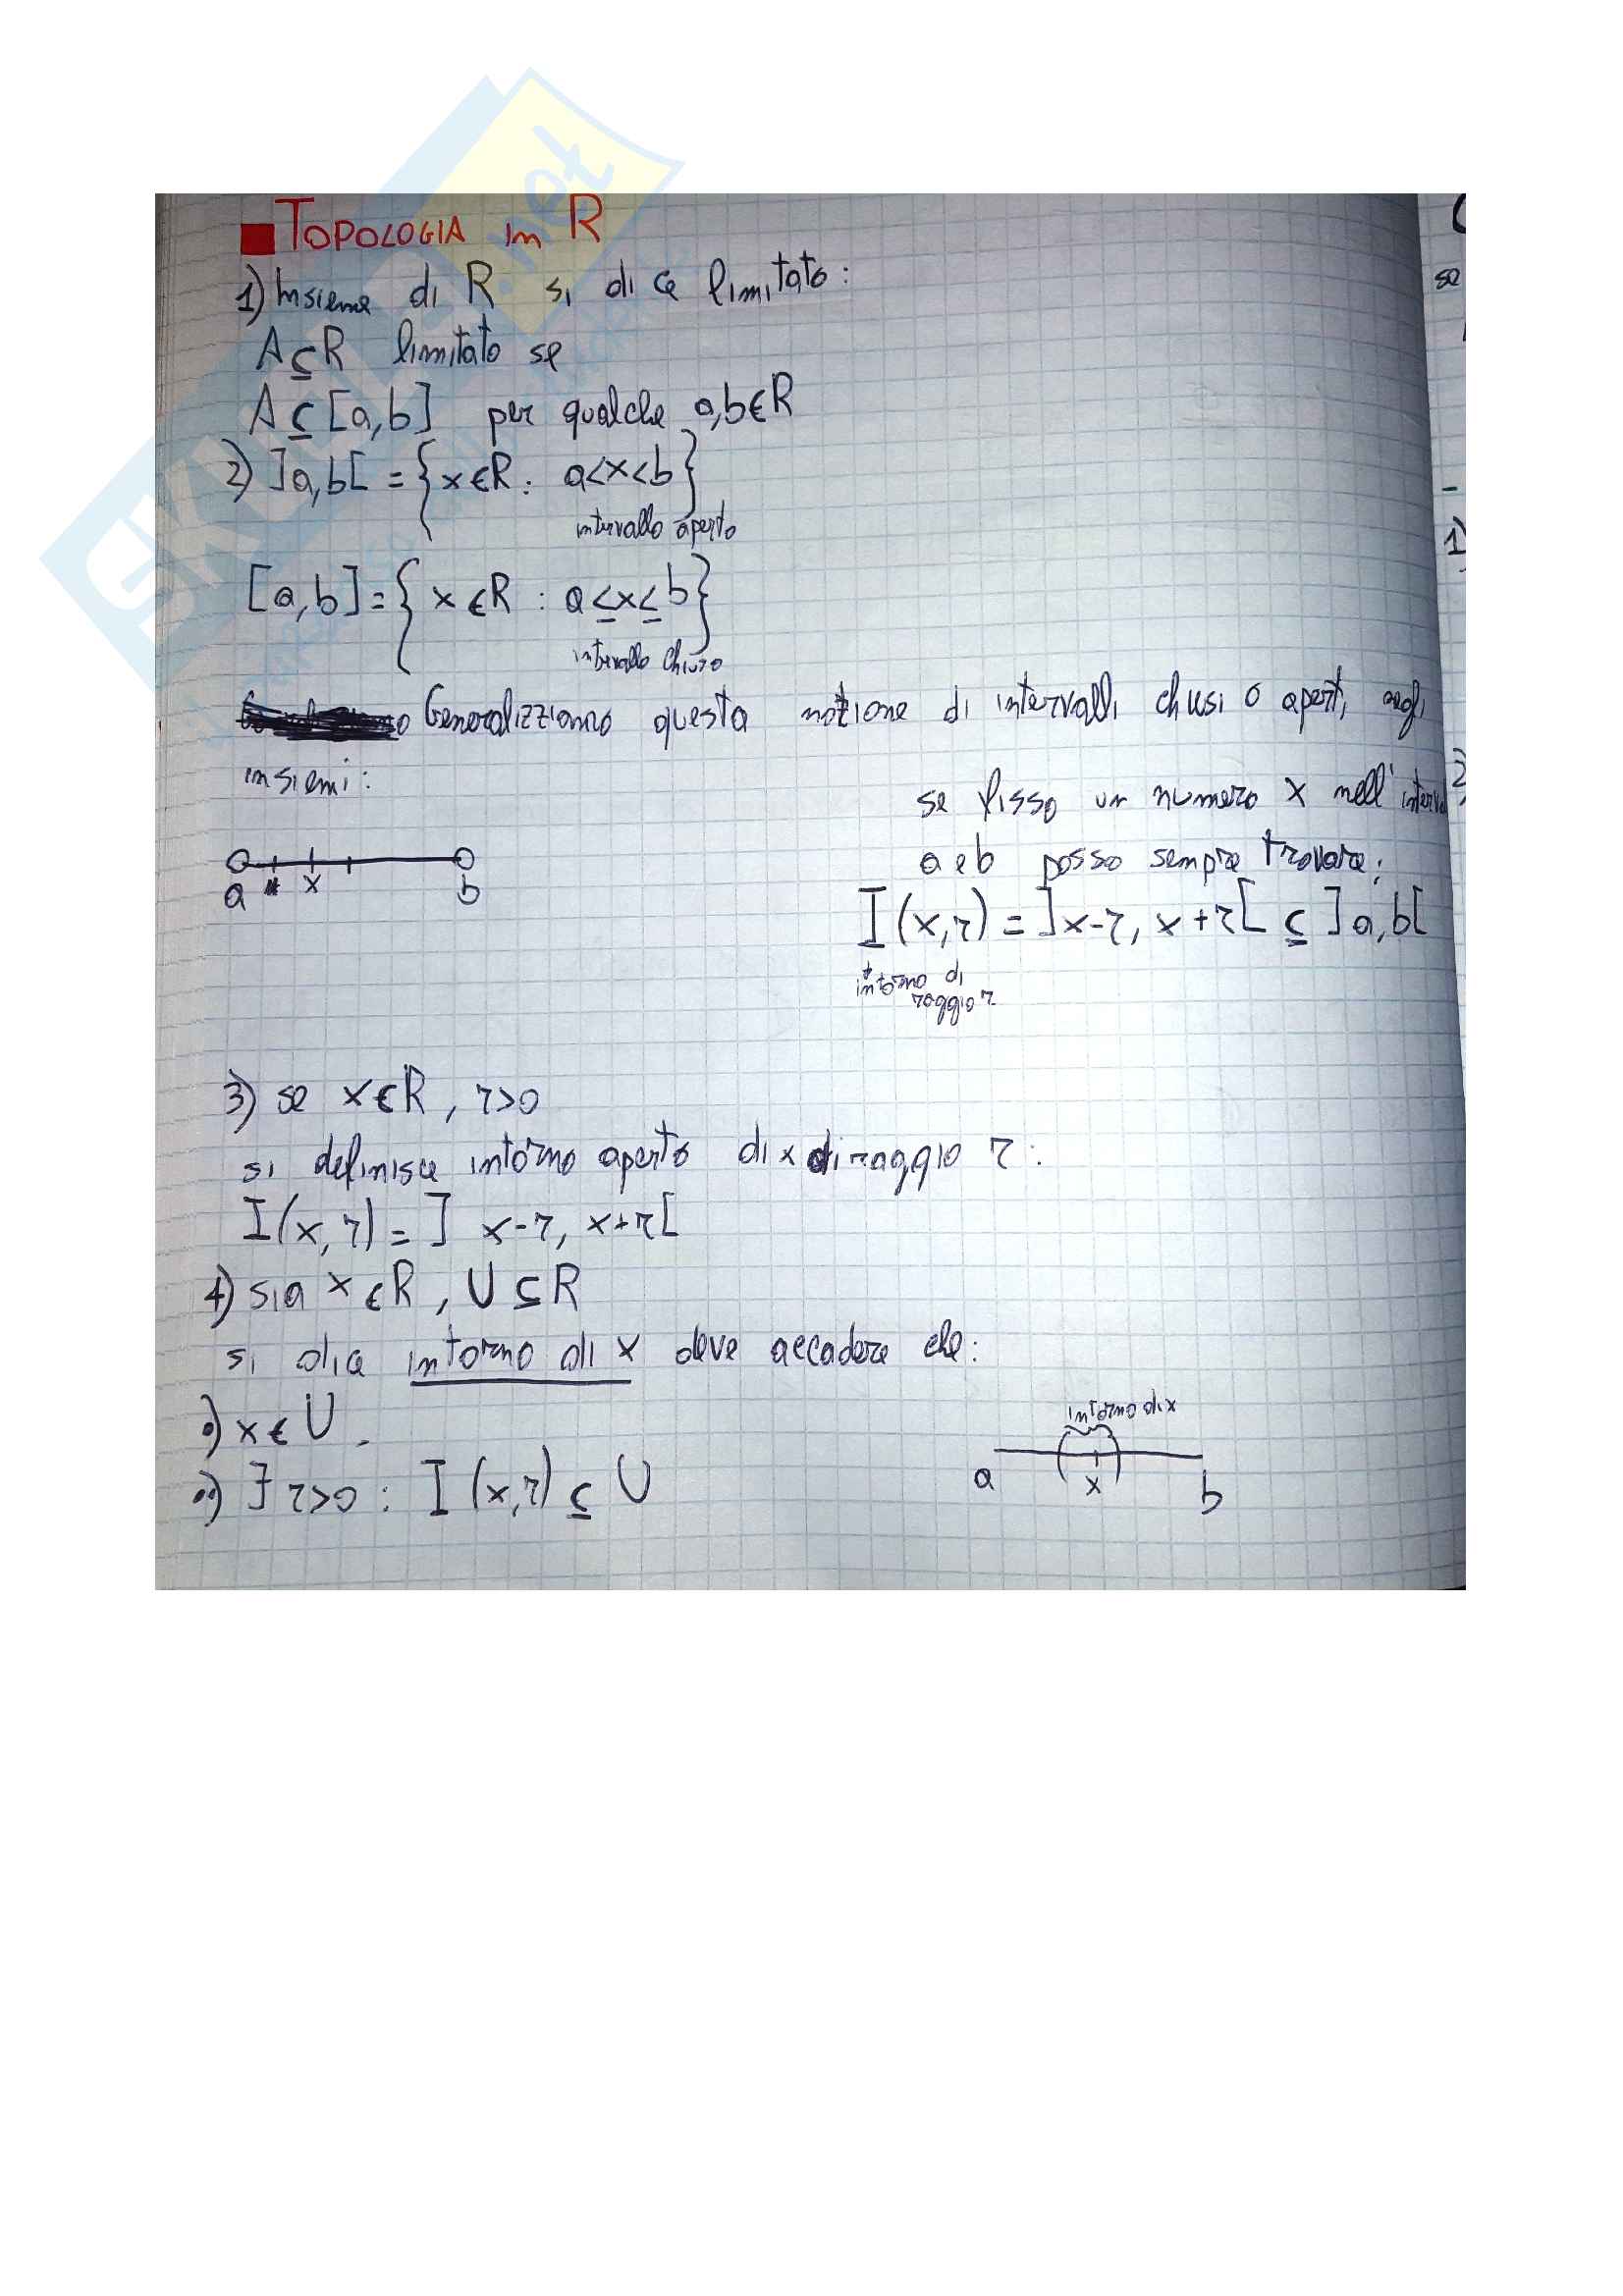 TOPOLOGIA in R
1) Insieme di R si dice limitato:
A⊆R limitato se
A⊆[a,b] per qualche a,b∈R
2) ]a,b[ = {x∈R: a<x<b}
intervallo aperto
[a,b] = {x∈R : a≤x≤b}
intervallo chiuso
Generalizziamo questa nozione di intervalli chiusi o aperti agli
insiemi:
se fisso un numero x nell'interval
a e b posso sempre trovare:
a x b
I(x,r) = ]x-r, x+r[ ⊆ ]a,b[
intorno di
raggio r
3) se x∈R, r>0
si definisce intorno aperto di x di raggio r:
I(x,r) = ] x-r, x+r[
4) sia x∈R, U⊆R
si dice intorno di x deve accadere che:
•) x∈U.
••) ∃ r>0 : I(x,r) ⊆ U
intorno di x
a x b
se
-
1)
2)
SKUOLA.net